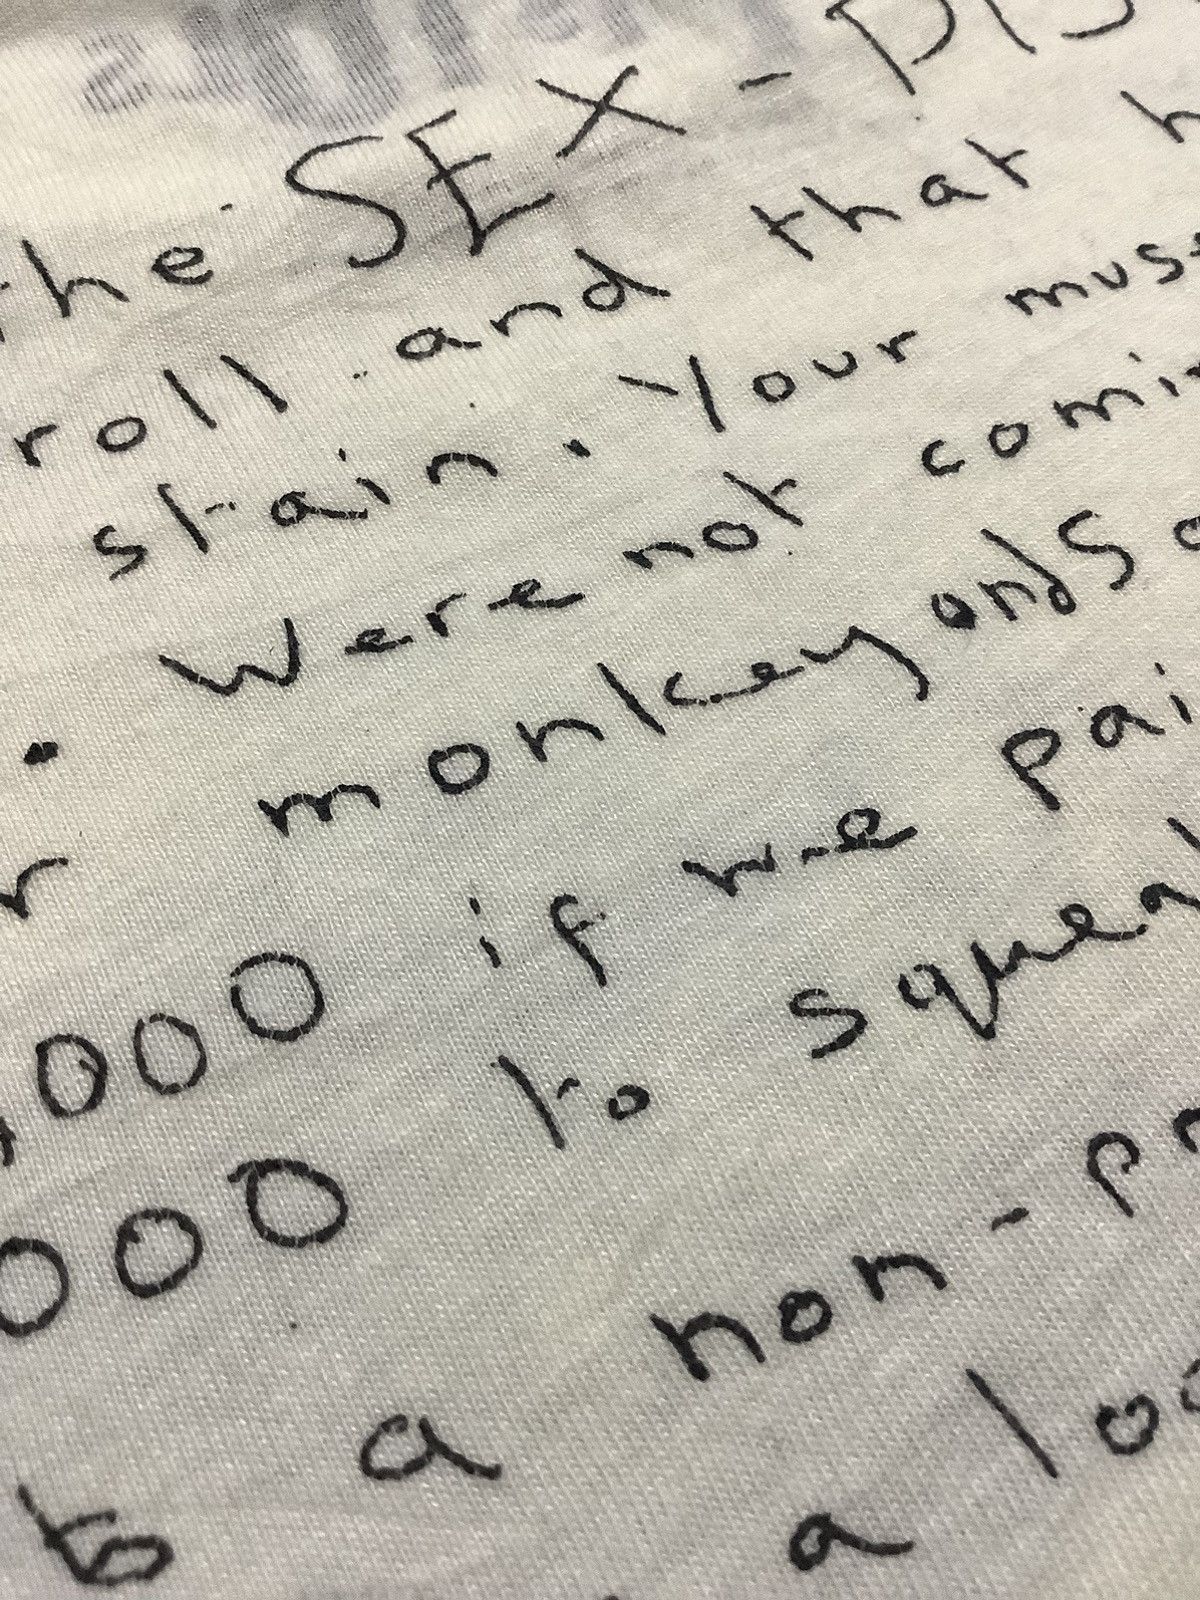 the SEX-PIS
roll and that h
stain. Your mus
. Were not comin
r monkey ands a
,000 if we pai
000 to squeal
a non-pr
to a lo